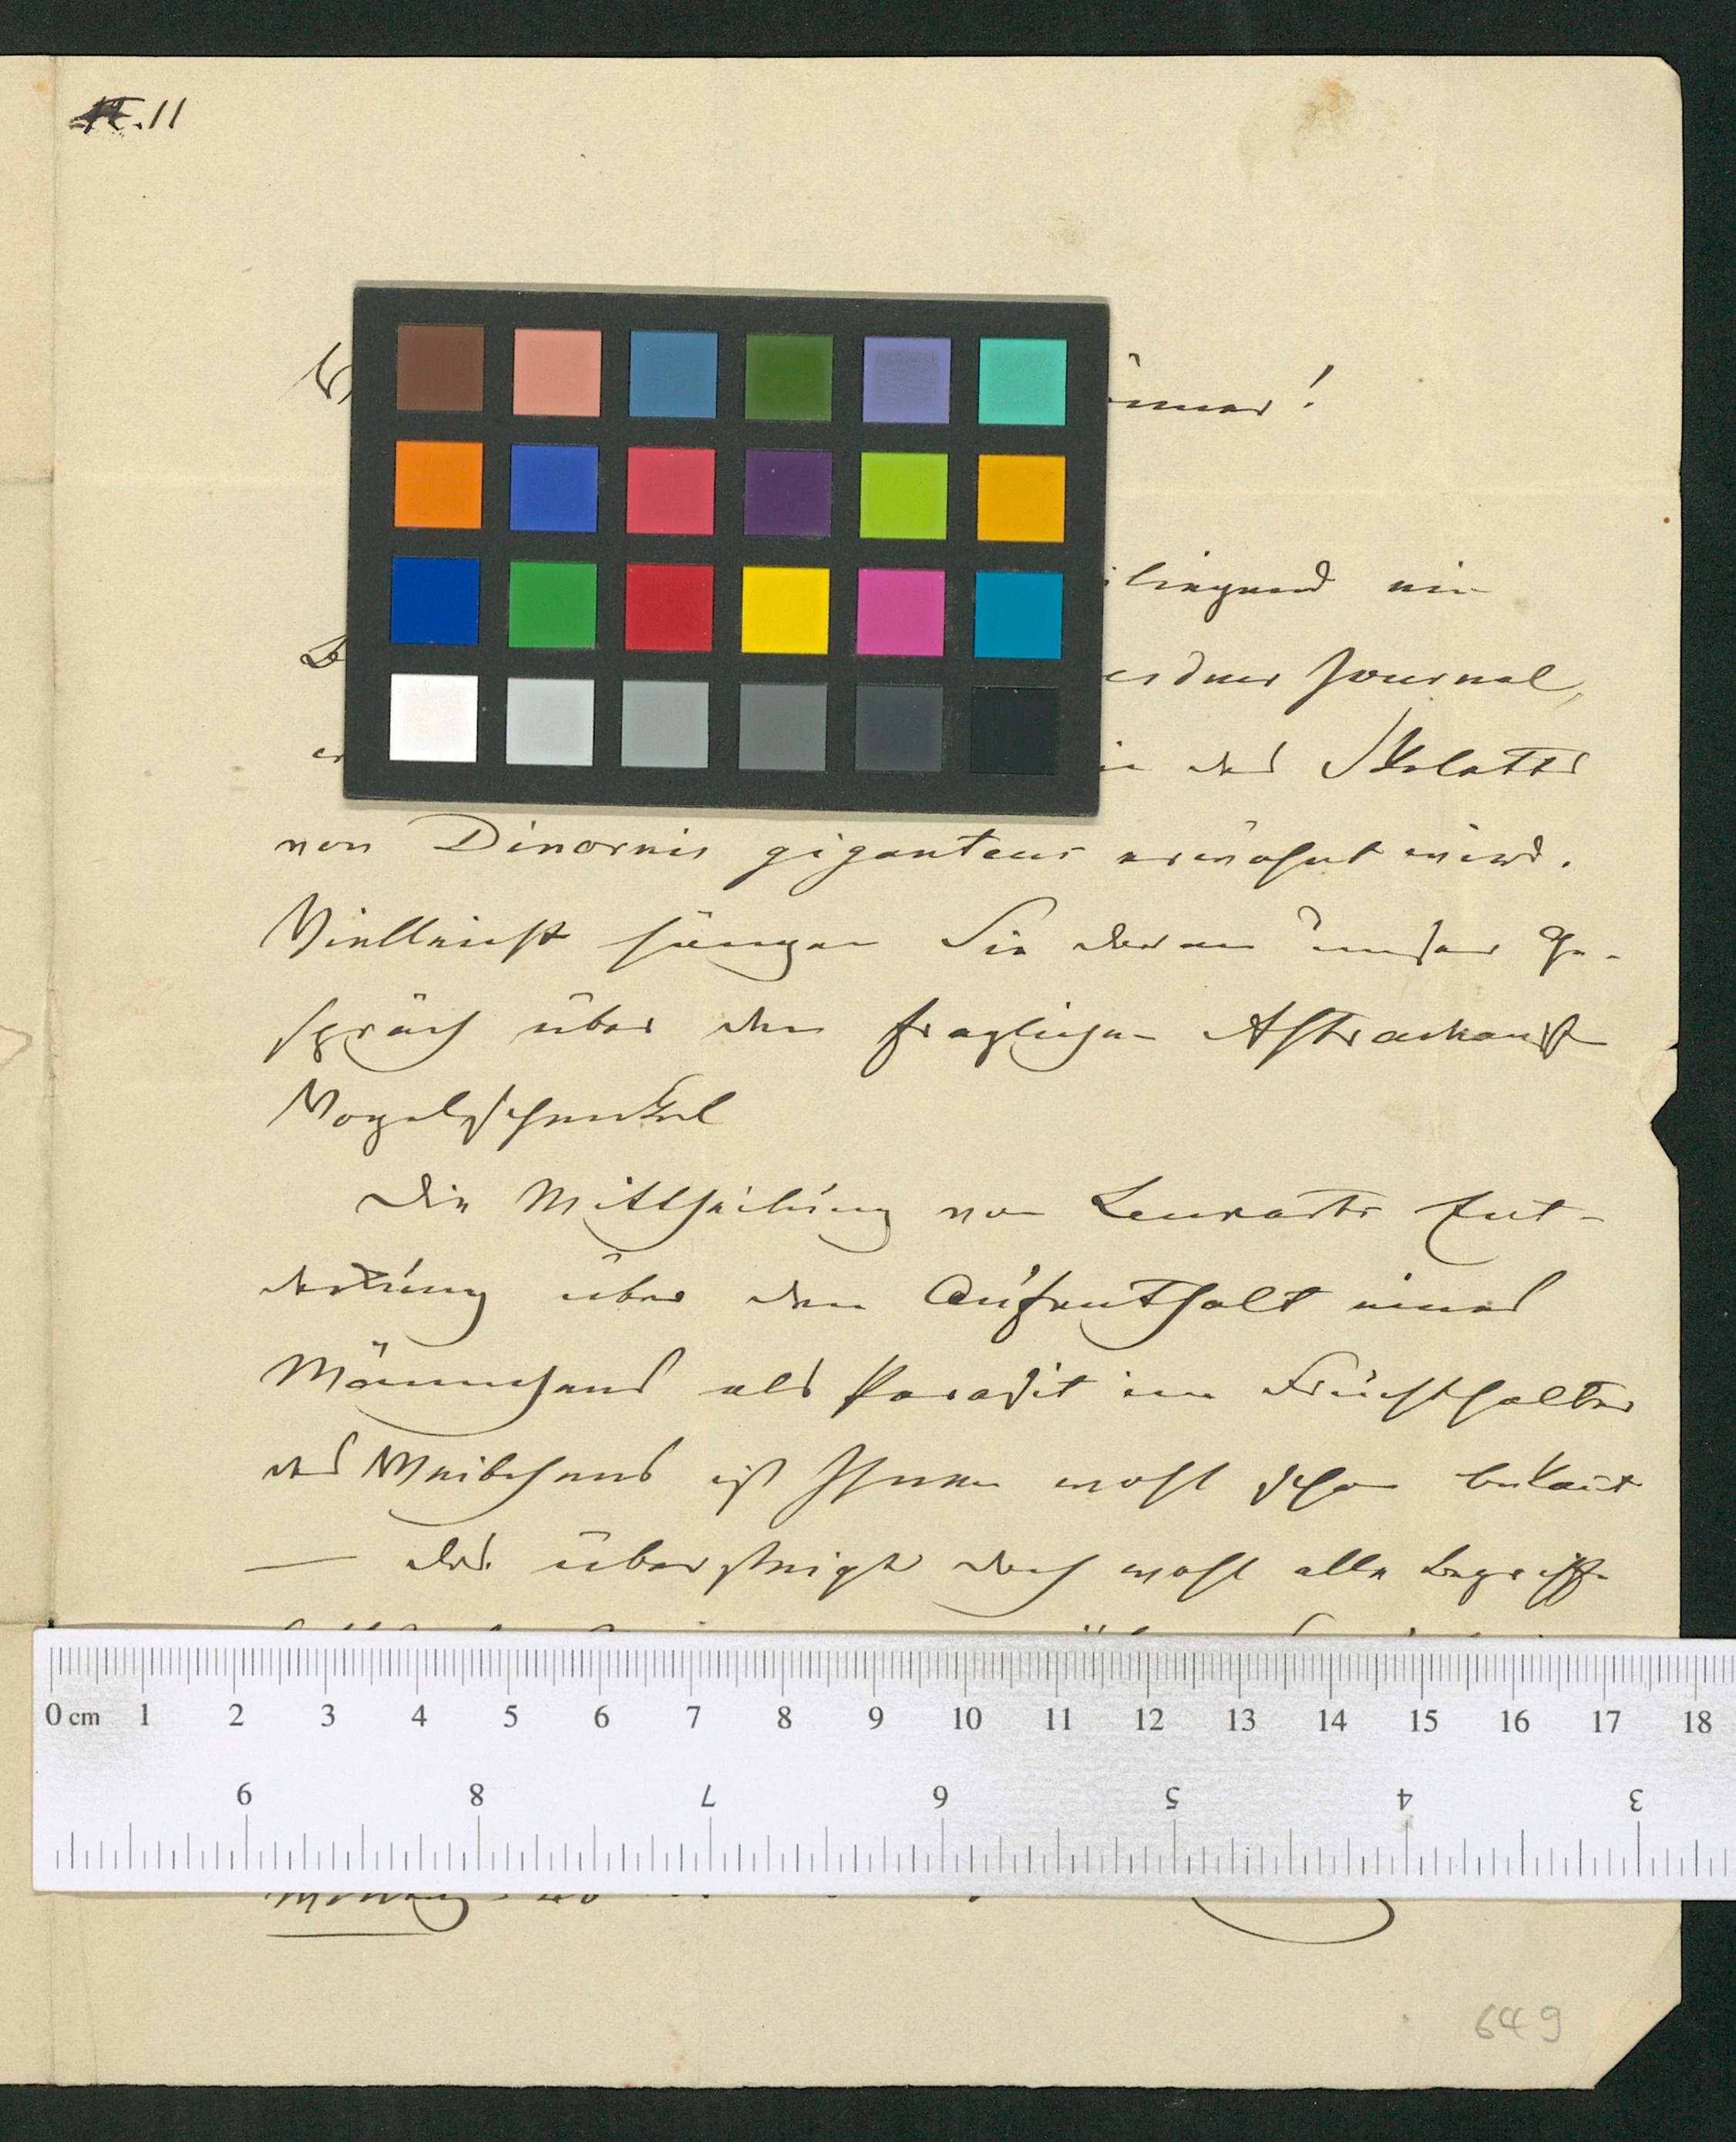 II.11
V
önner!
iliegend ein
B
esdner Journal,
in das Skelett
von Dinornis giganteus erwähnt wird.
Vielleicht hängen Sie daran unser Ge-
spräch über den fraglichen Astrachansch
Vogelschenkel
Die Mittheilung von Leukarts Ent-
deckung über den Aufenthalt eines
Männchens als Parasit im Fruchthalter
des Weibchens ist Ihnen wohl schon bekañt
— das übersteigt doch wohl alle Begriffe
0 cm 1 2 3 4 5 6 7 8 9 10 11 12 13 14 15 16 17 18
9 8 7 6 5 4 3
649